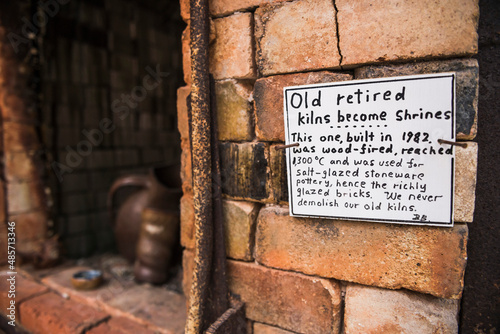 Old retired
kilns become Shrines
This one, built in 1982,
was wood-fired, reached
1,300°C and was used for
salt-glazed stoneware
pottery, hence the richly
glazed bricks. We never
demolish our old kilns.